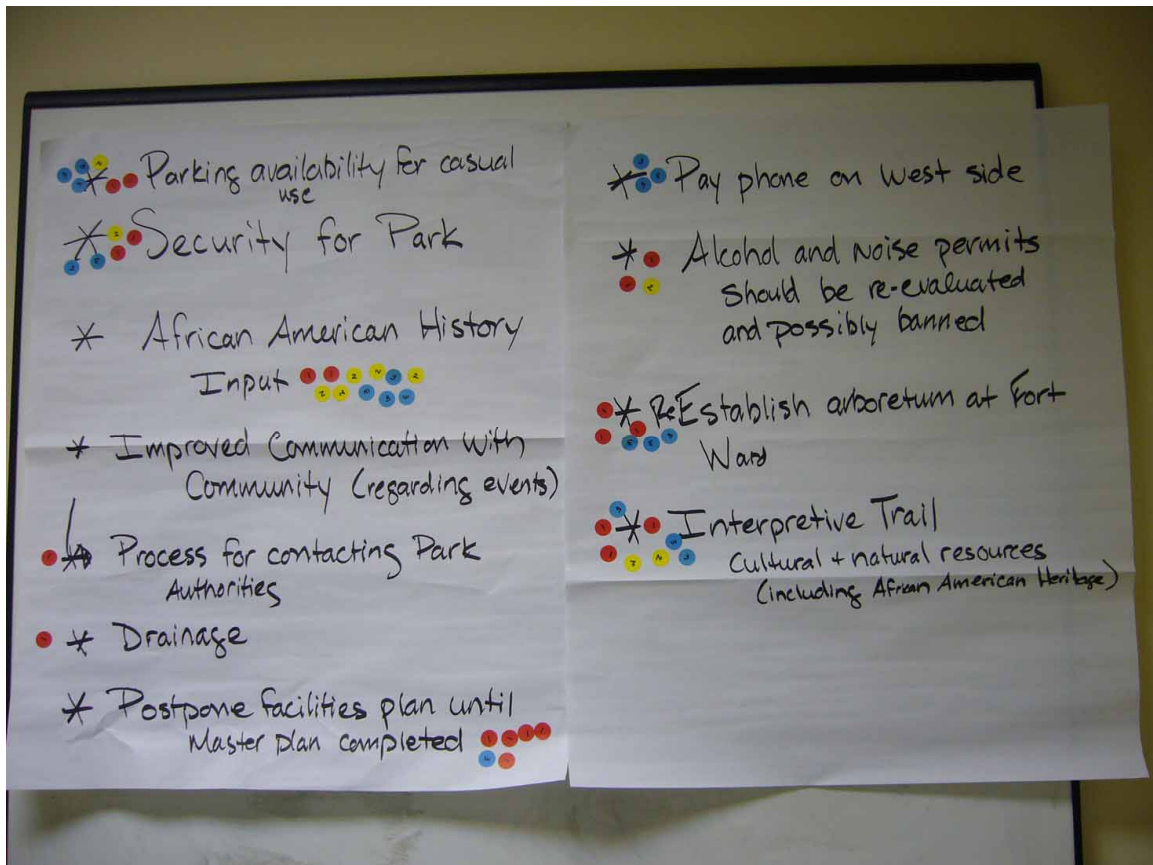 * Parking availability for casual
use
* Security for Park
* African American History
Input
* Improved Communication with
Community (regarding events)
* Process for contacting Park
Authorities
* Drainage
* Postpone facilities plan until
Master plan completed
* Pay phone on west side
* Alcohol and Noise permits
should be re-evaluated
and possibly banned
* ReEstablish arboretum at Fort
Ward
* Interpretive Trail
Cultural + natural resources
(including African American Heritage)